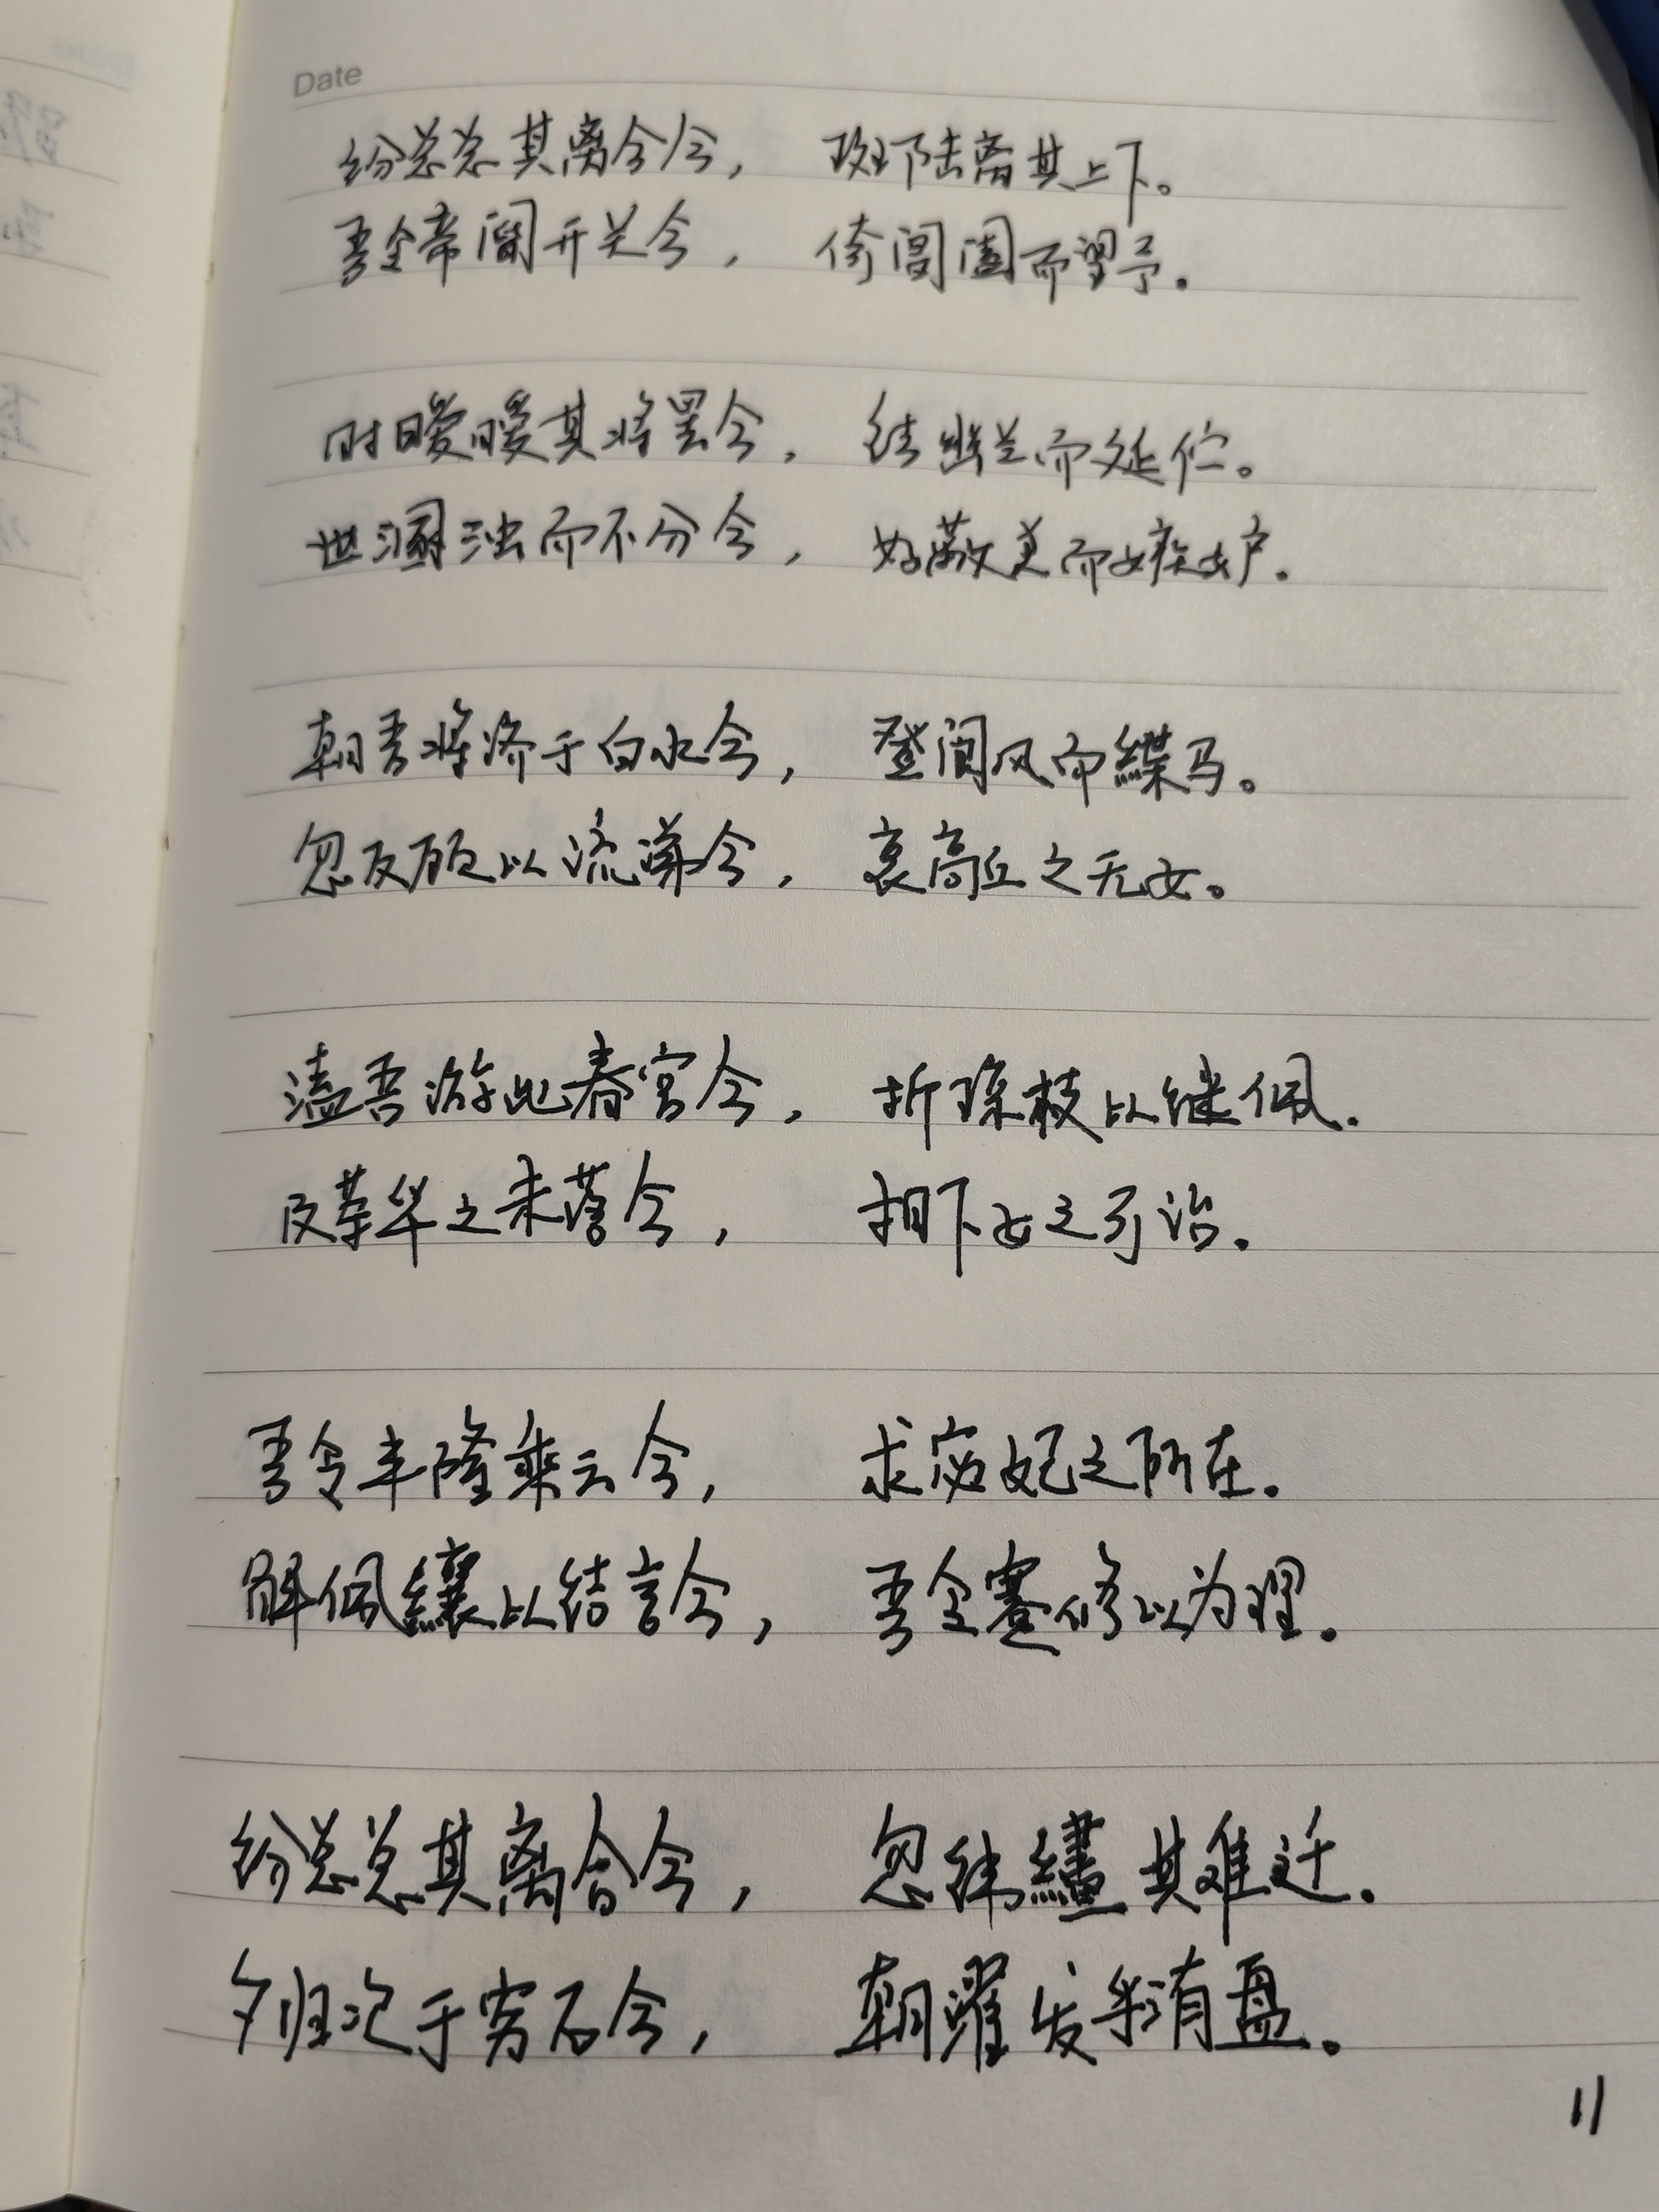 Date
纷总总其离合兮， 斑陆离其上下。
吾令帝阍开关兮， 倚阊阖而望予。
时暧暧其将罢兮， 结幽兰而延伫。
世溷浊而不分兮， 好蔽美而嫉妒。
朝吾将济于白水兮， 登阆风而緤马。
忽反顾以流涕兮， 哀高丘之无女。
溘吾游此春宫兮， 折琼枝以继佩。
及荣华之未落兮， 相下女之可诒。
吾令丰隆乘云兮， 求宓妃之所在。
解佩纕以结言兮， 吾令蹇修以为理。
纷总总其离合兮， 忽纬繣其难迁。
夕归次于穷石兮， 朝濯发乎洧盘。
11